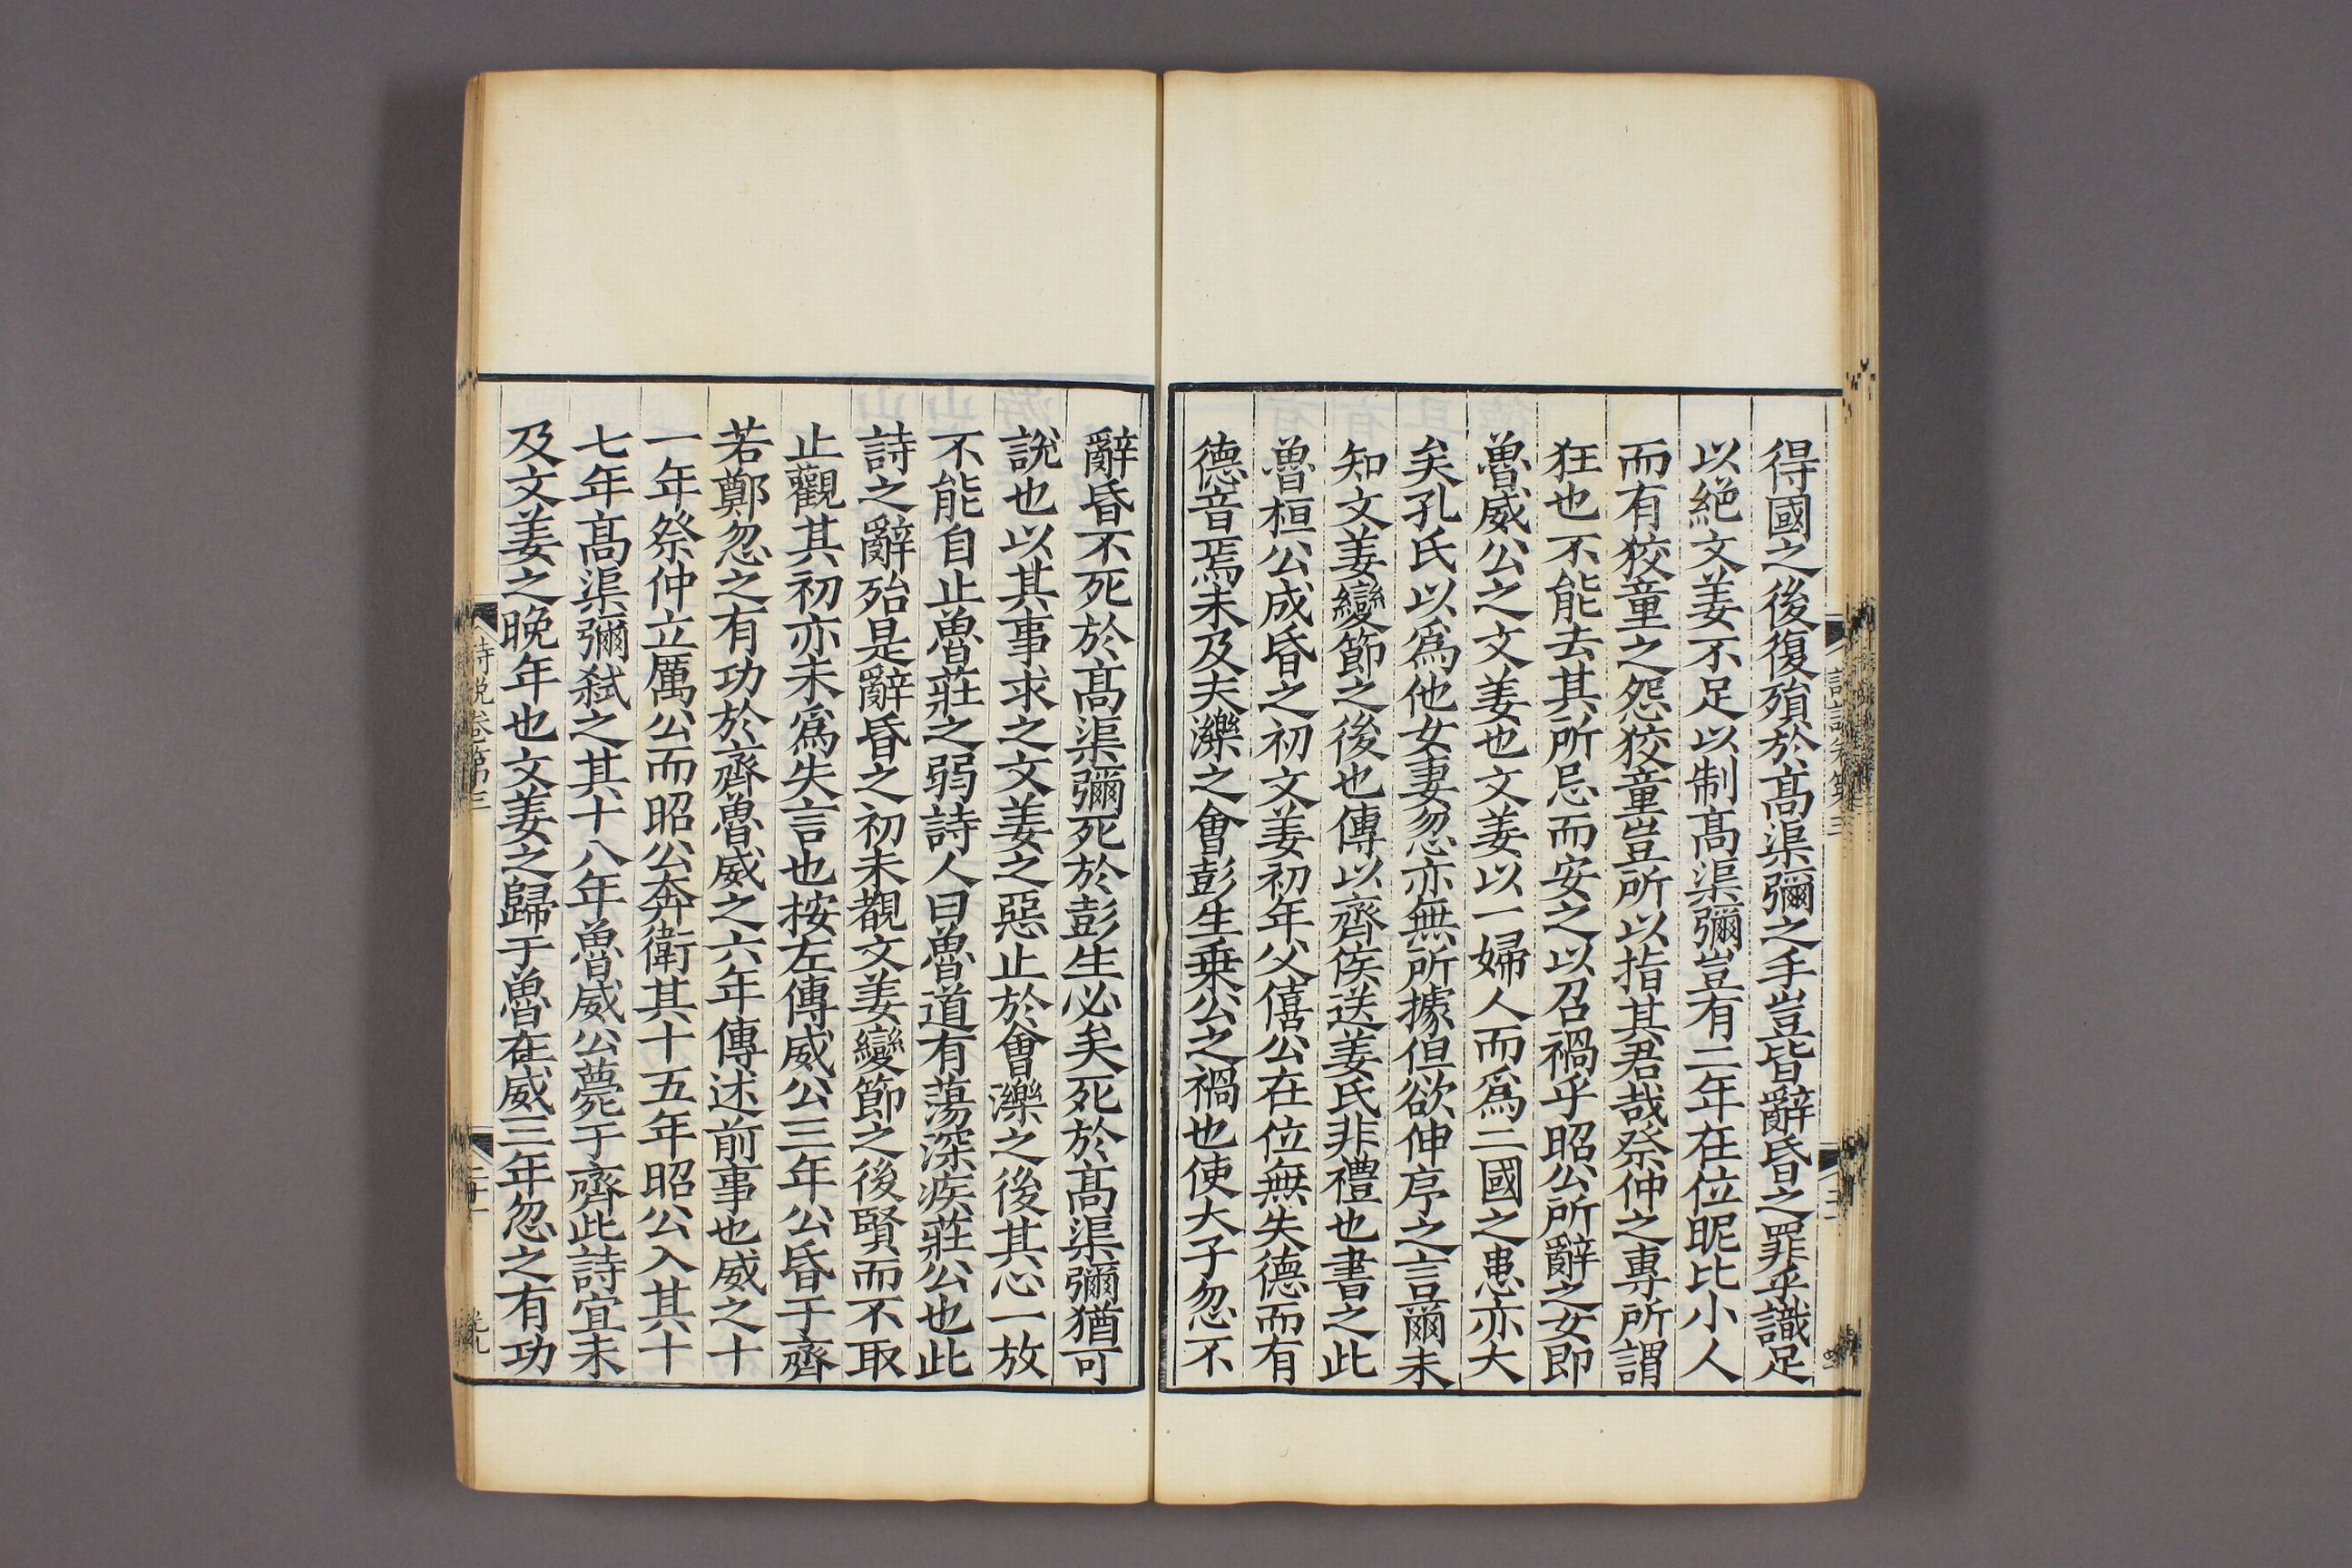 得國之後復殞於髙渠彌之手豈皆辭昏之罪乎識足
以絶文姜不足以制髙渠彌豈有二年在位昵比小人
而有狡童之怨狡童豈所以指其君哉祭仲之專所謂
狂也不能去其所忌而安之以召禍乎昭公所辭之女即
魯威公之文姜也文姜以一婦人而爲二國之患亦大
矣孔氏以爲他女妻忽亦無所據但欲伸序之言爾未
知文姜變節之後也傳以齊侯送姜氏非禮也書之此
魯桓公成昏之初文姜初年父僖公在位無失德而有
德音焉未及夫濼之會彭生乗公之禍也使大子忽不
辭昏不死於髙渠彌死於彭生必矣死於髙渠彌猶可
說也以其事求之文姜之惡止於會濼之後其心一放
不能自止魯莊之弱詩人曰魯道有蕩深疾莊公也此
詩之辭殆是辭昏之初未覩文姜變節之後賢而不取
止觀其初亦未爲失言也按左傳威公三年公昏于齊
若鄭忽之有功於齊魯威之六年傳述前事也威之十
一年祭仲立厲公而昭公奔衛其十五年昭公入其十
七年髙渠彌弑之其十八年魯威公薨于齊此詩宜未
及文姜之晩年也文姜之歸于魯在威三年忽之有功
詩說卷第三